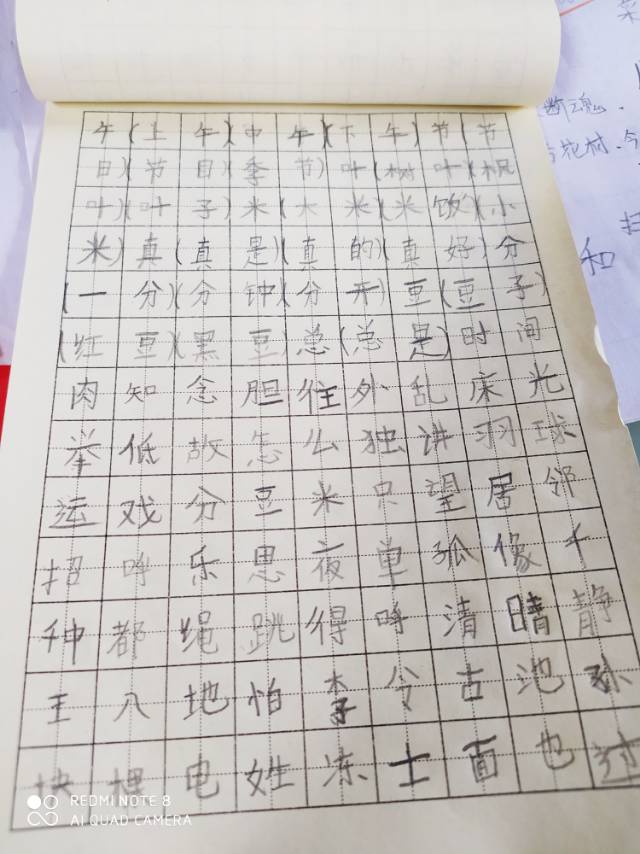 午(上午(中午(下午)节(节
日)(节目(季节)叶(树叶(枫
叶)(叶子)米(大米(米饭(小
米)真(真是)(真的(真好)分
(一分)(分钟)(分开)豆(豆子)
(红豆(黑豆)总(总是)时间
肉知念胆往外乱床光
举低故怎么独讲羽球
运戏分豆米只望居邻
招呼乐思夜单孤像千
种都绳跳得呼清晴静
王八地怕李令古池孙
块棵电姓冻士面也过
断魂.
花村.今
菜
和
REDMI NOTE 8
AI QUAD CAMERA